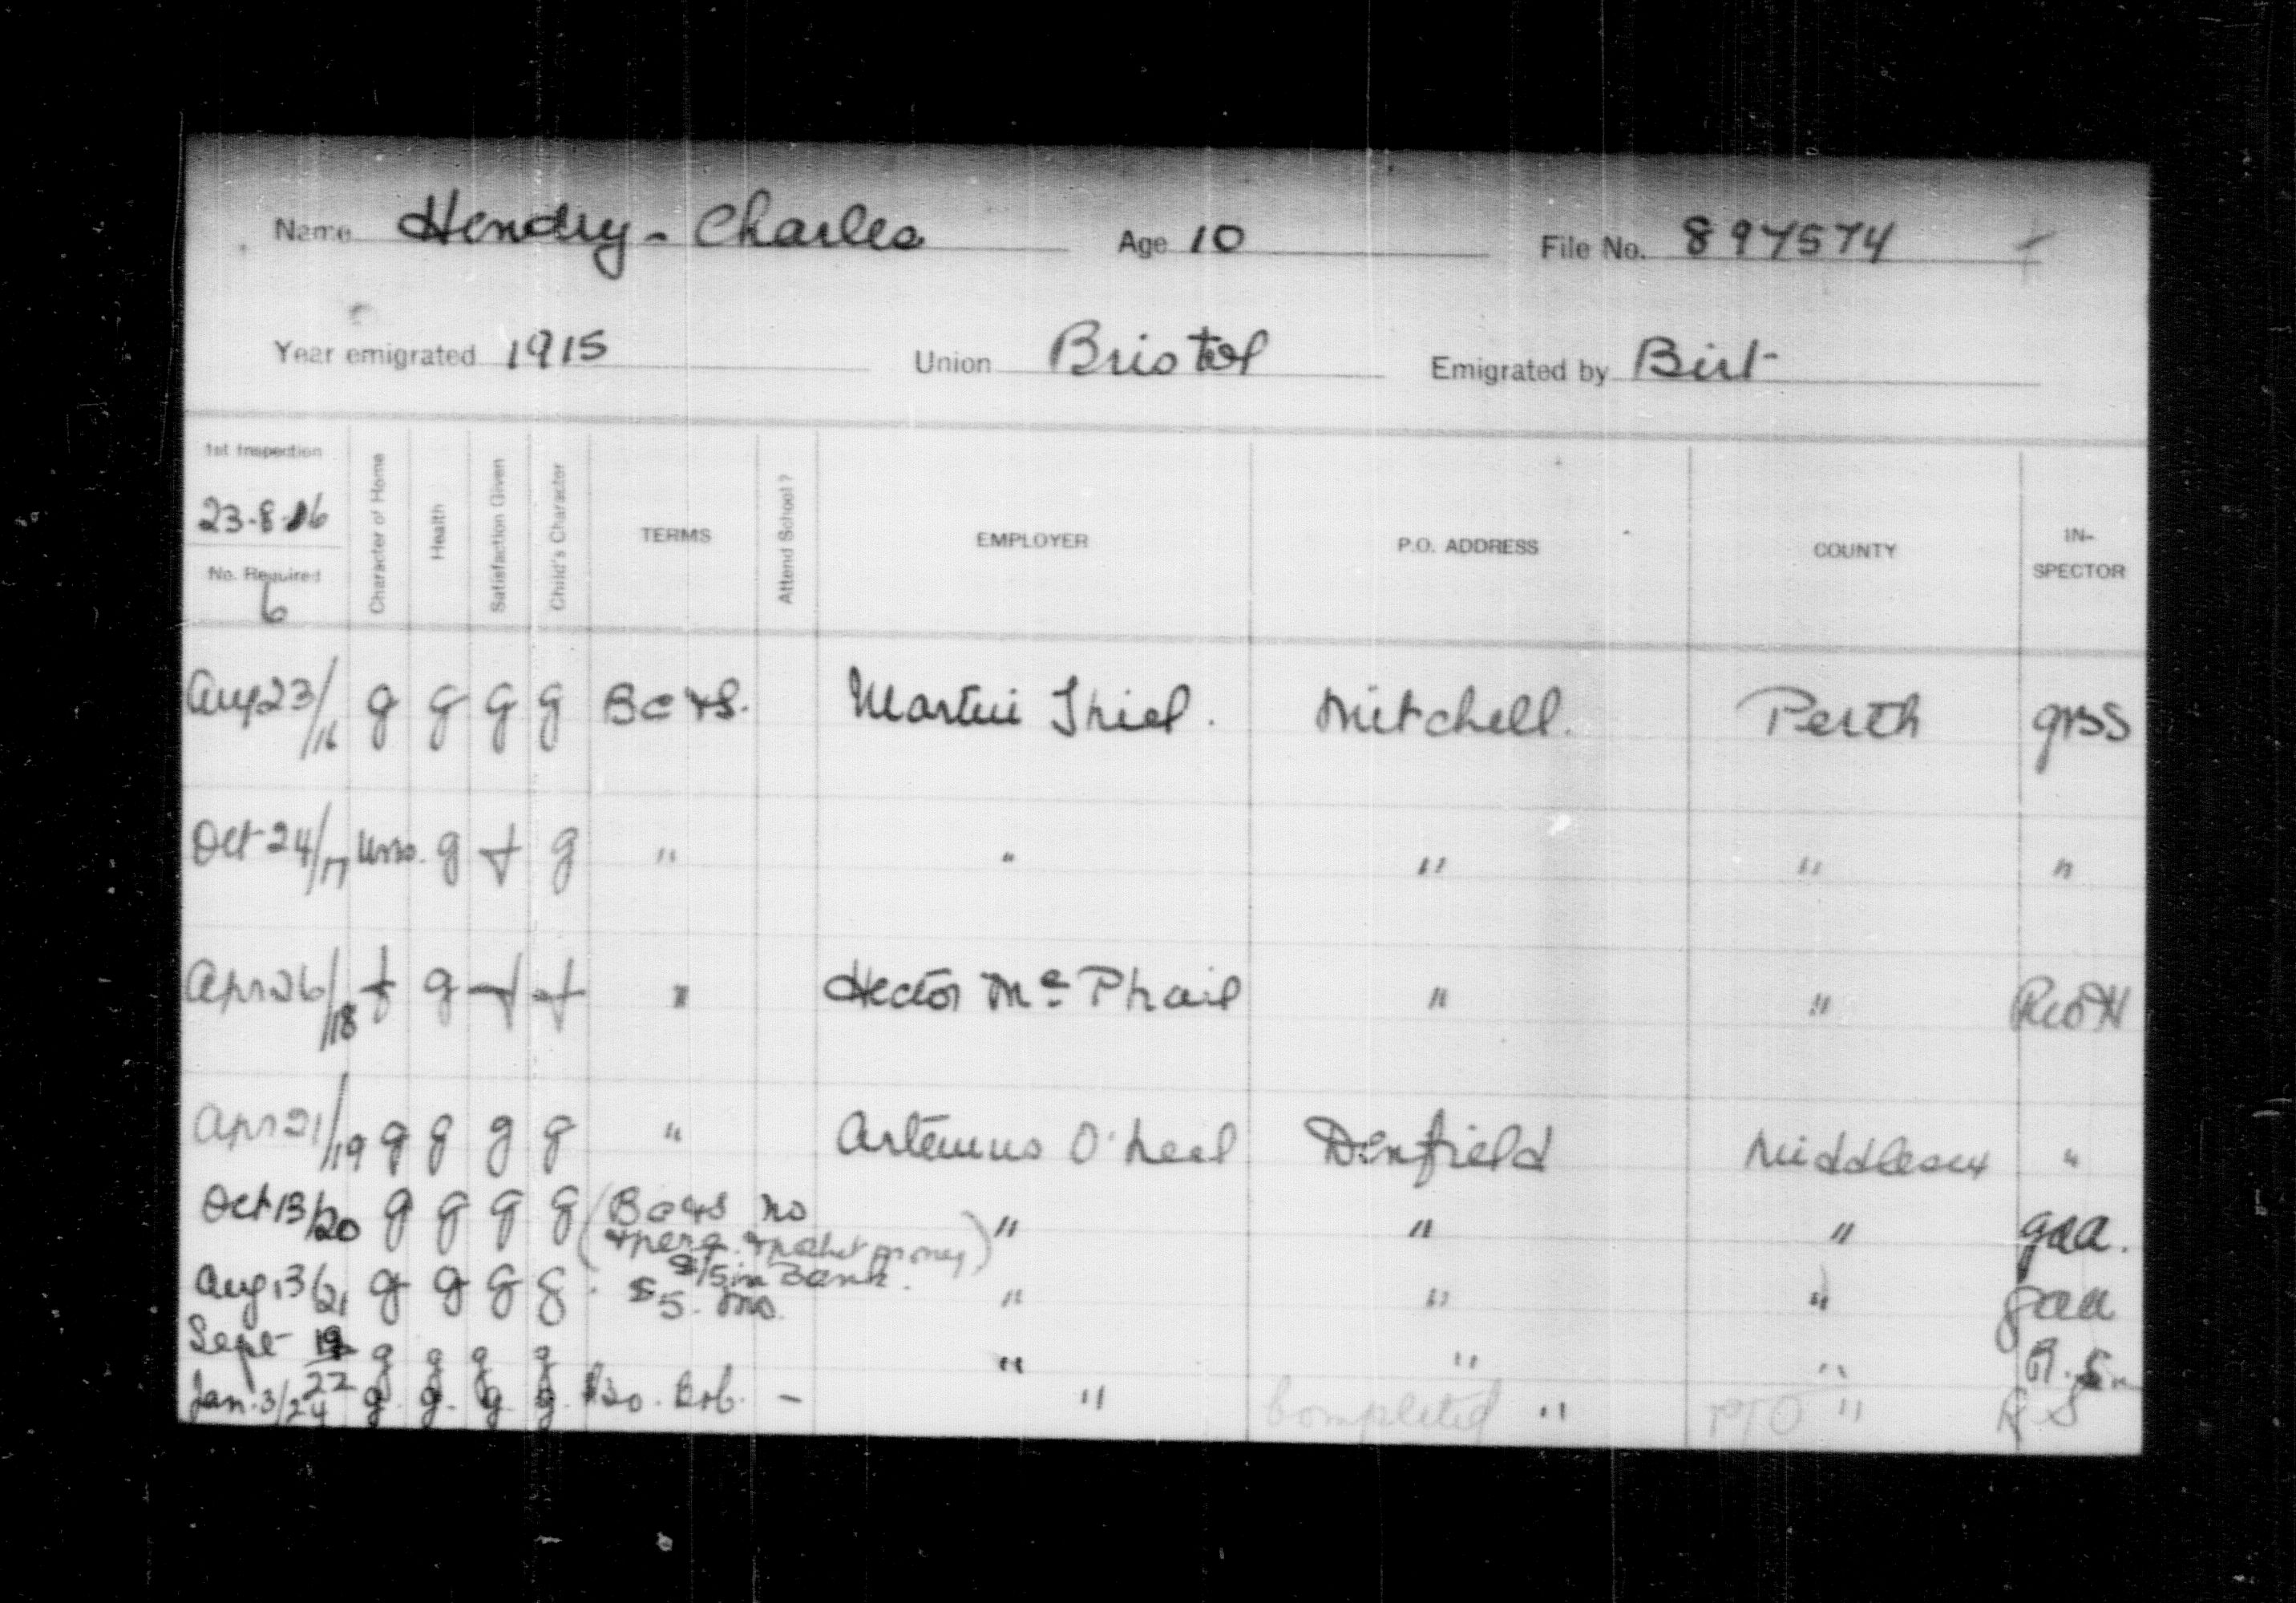 Name Hendry - Charles Age 10 File No. 897574
Year emigrated 1915 Union Bristol Emigrated by Birt
1st Inspection
23-8-16
No. Required
6
Character of Home
Health
Satisfaction Given
Child's Character
TERMS
Attend School?
EMPLOYER
P.O. ADDRESS
COUNTY
IN-
SPECTOR
Aug 23/16 g g g g B C & S. Martin Thiel. Mitchell. Perth GBS
Oct 24/17 Uns. g f g " " " " "
Apr 26/18 f g f f " Hector Mc Phail " "
Apr 21/19 g g g g " Artemus O'Neil Denfield Middlesex "
Oct 13/20 g g g g (B C & S no " " " gaa.
& perq. & pocket money)
$15 in Bank.
Aug 13/21 g g g g $5. mo. " " " gaa
Sept 19/22 g g g g " " "
Jan. 3/24 g. g. g. g. - " Completed " PTO " R S